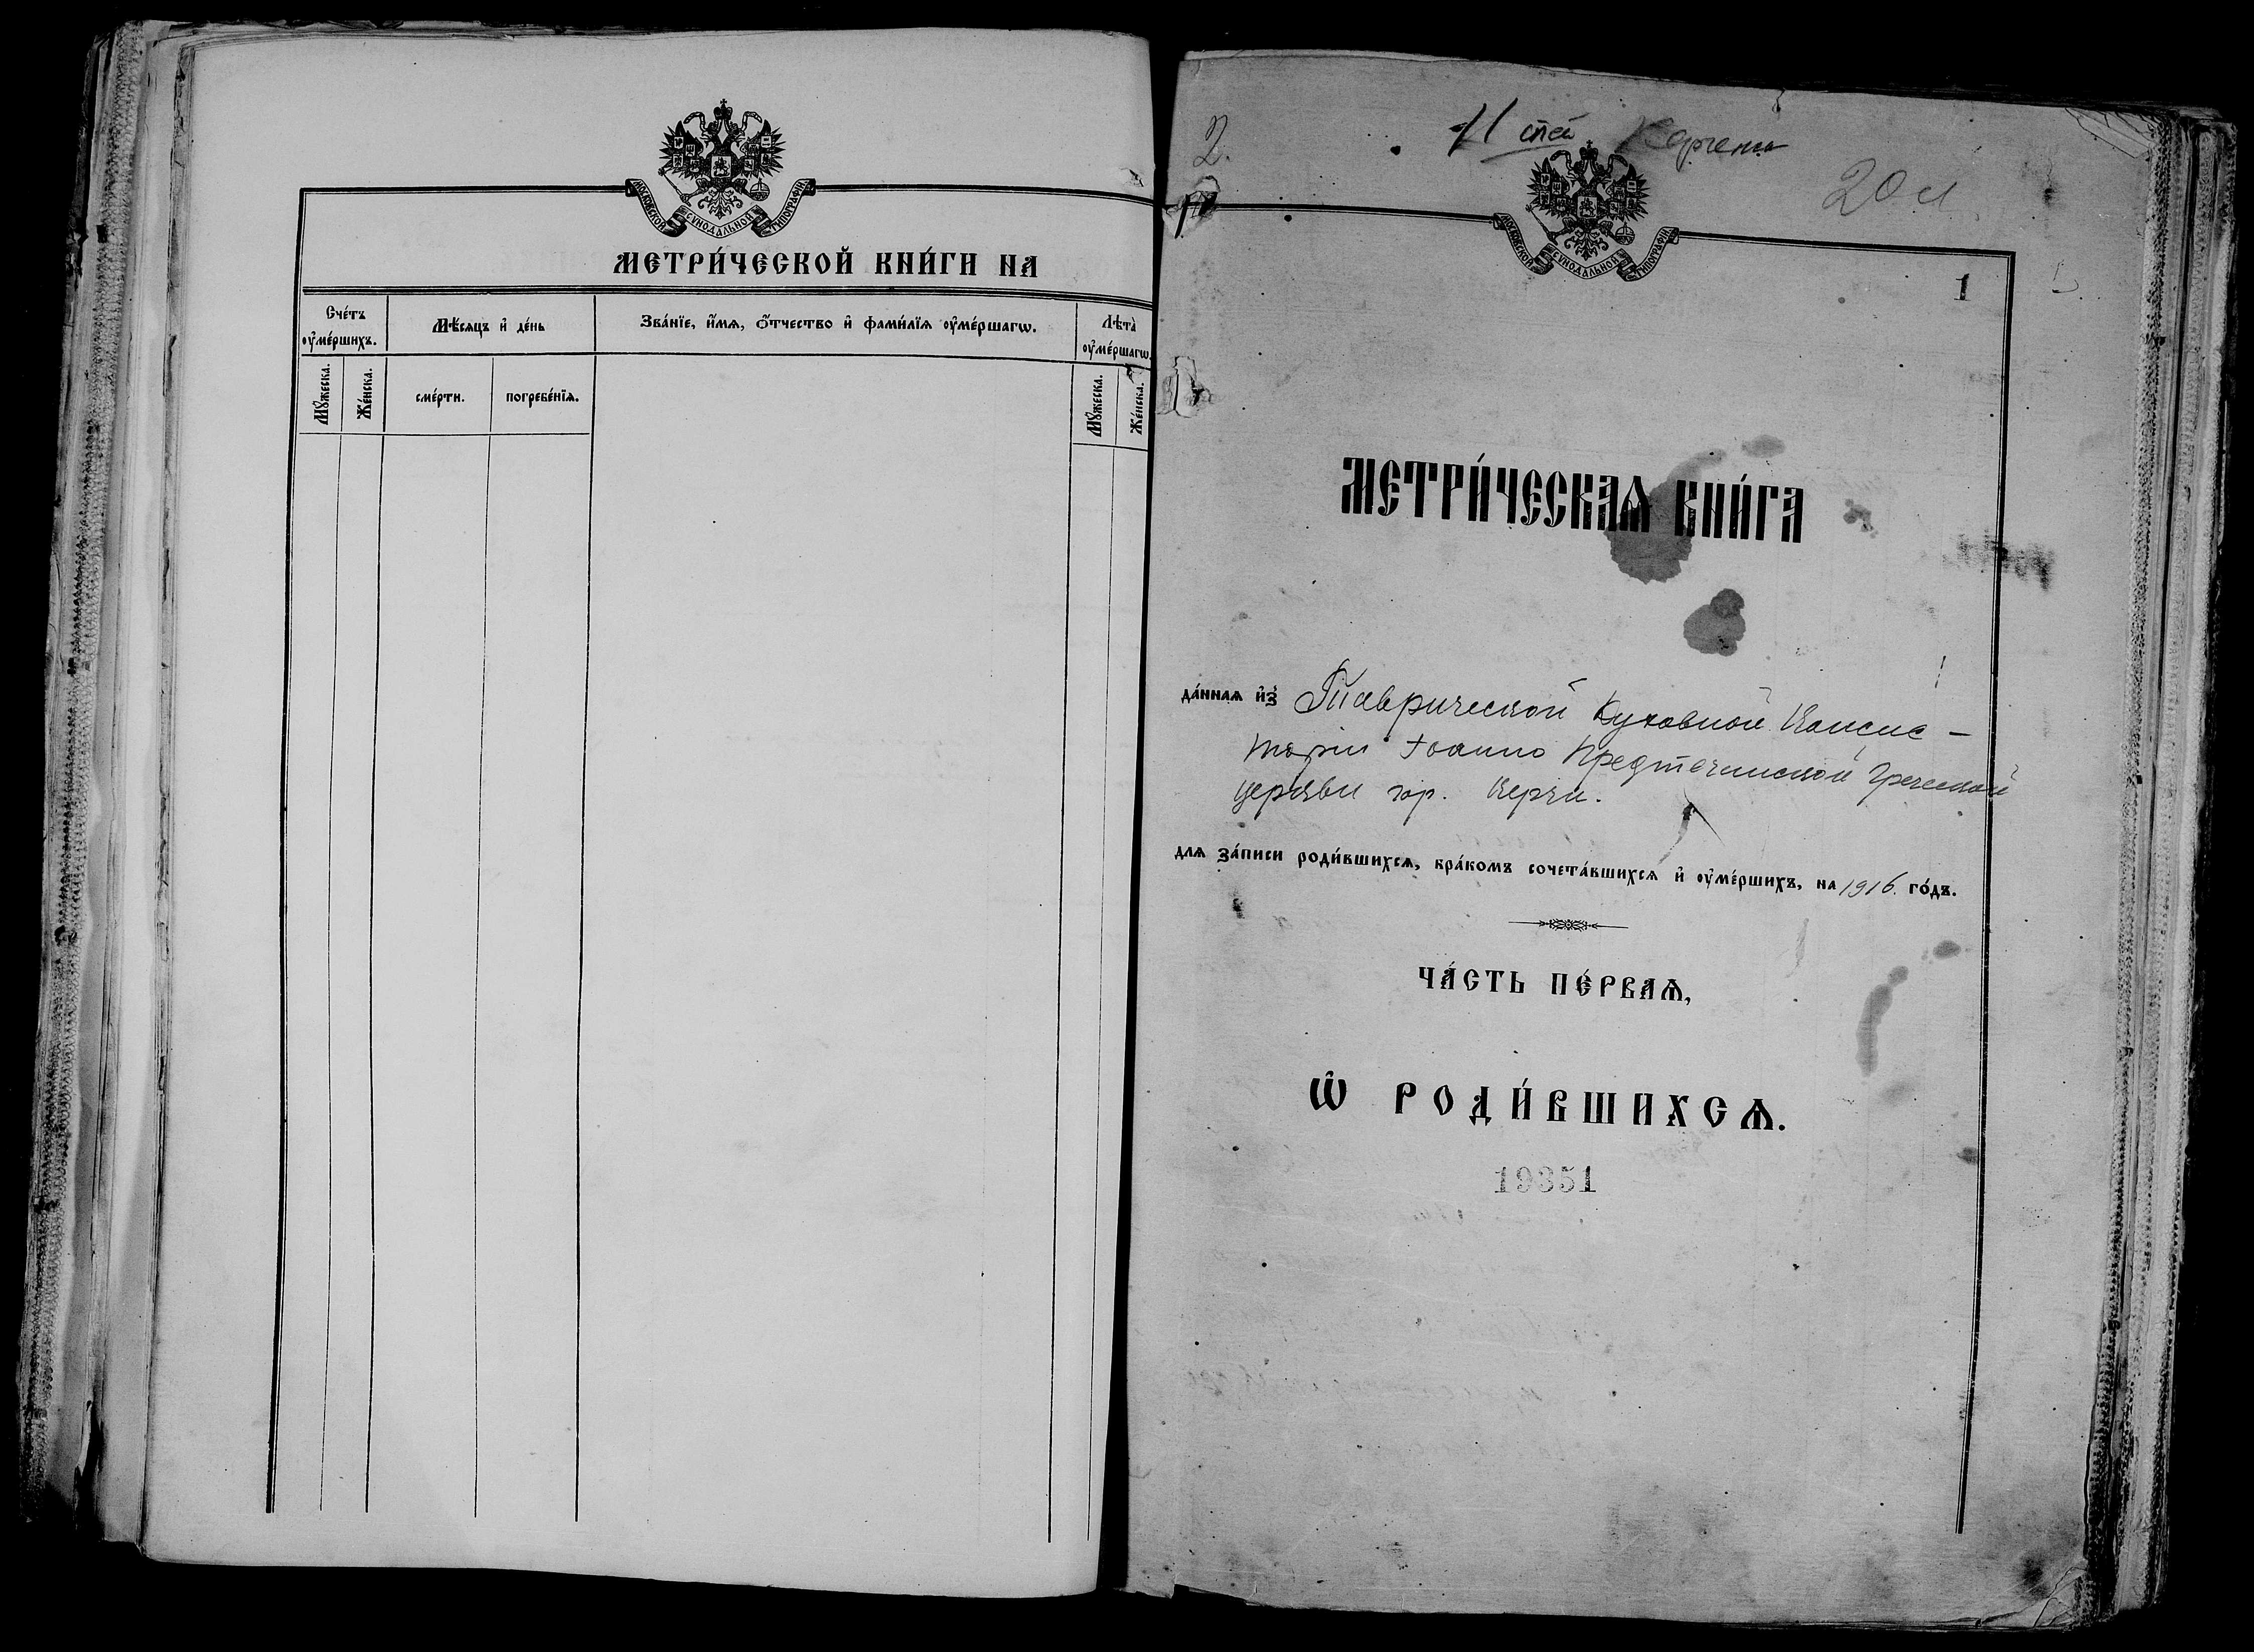 МОСКОВСКОЙ СѴНОДАЛЬНОЙ ТИПОГРАФІИ
МЕТРИ́ЧЕСКОЙ КНИ́ГИ НА
Сче́тъ
оу҆ме́ршихъ.
Мѣ́сяцъ и҆ де́нь
Зва́нїе, и҆́мѧ, ѻ҆́тчество и҆ фами́лїѧ оу҆ме́ршагѡ.
Лѣ́та
оу҆ме́ршагѡ.
Мꙋ́жеска.
Же́нска.
сме́рти.
погребе́нїѧ.
Мꙋ́жеска.
Же́нска.
2.
20 л
МОСКОВСКОЙ СѴНОДАЛЬНОЙ ТИПОГРАФІИ
1
МЕТРИ́ЧЕСКАѦ КНИ́ГА
да́ннаѧ и҆з̾ Таврической Духовной Консис-
торіи Іоанно Предтеченской Греческой
церкви гор. Керчи.
длѧ за́писи роди́вшихсѧ, бра́комъ сочета́вшихсѧ и҆ оу҆ме́ршихъ, на 1916. го́дъ.
ЧА́СТЬ ПЕ́РВАѦ,
Ѽ РОДИ́ВШИХСѦ.
19351